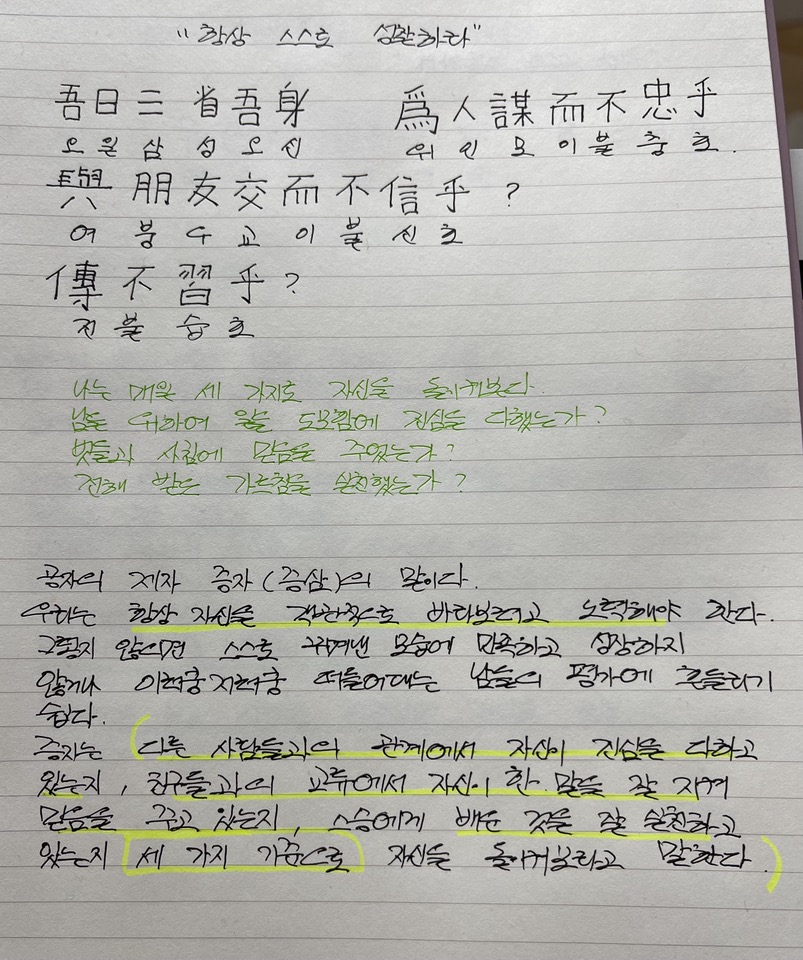 "항상 스스로 성찰하라"
吾日三省吾身 爲人謀而不忠乎
오일삼성오신 위인모이불충호.
與朋友交而不信乎?
여붕우교이불신호
傳不習乎?
전불습호
나는 매일 세 가지로 자신을 돌이켜본다.
남을 위하여 일을 도모함에 진심을 다했는가?
벗들과 사귐에 믿음을 주었는가?
전해 받은 가르침을 실천했는가?
공자의 제자 증자(증삼)의 말이다.
우리는 항상 자신을 객관적으로 바라보려고 노력해야 한다.
그렇지 않으면 스스로 꾸며낸 모습에 만족하고 성장하지
않거나 이러쿵저러쿵 떠들어대는 남들의 평가에 흔들리기
쉽다.
증자는 (다른 사람들과의 관계에서 자신이 진심을 다하고
있는지, 친구들과의 교류에서 자신이 한 말을 잘 지켜
믿음을 주고 있는지, 스승에게 배운 것을 잘 실천하고
있는지 세 가지 기준으로 자신을 돌이켜보라고 말한다.)